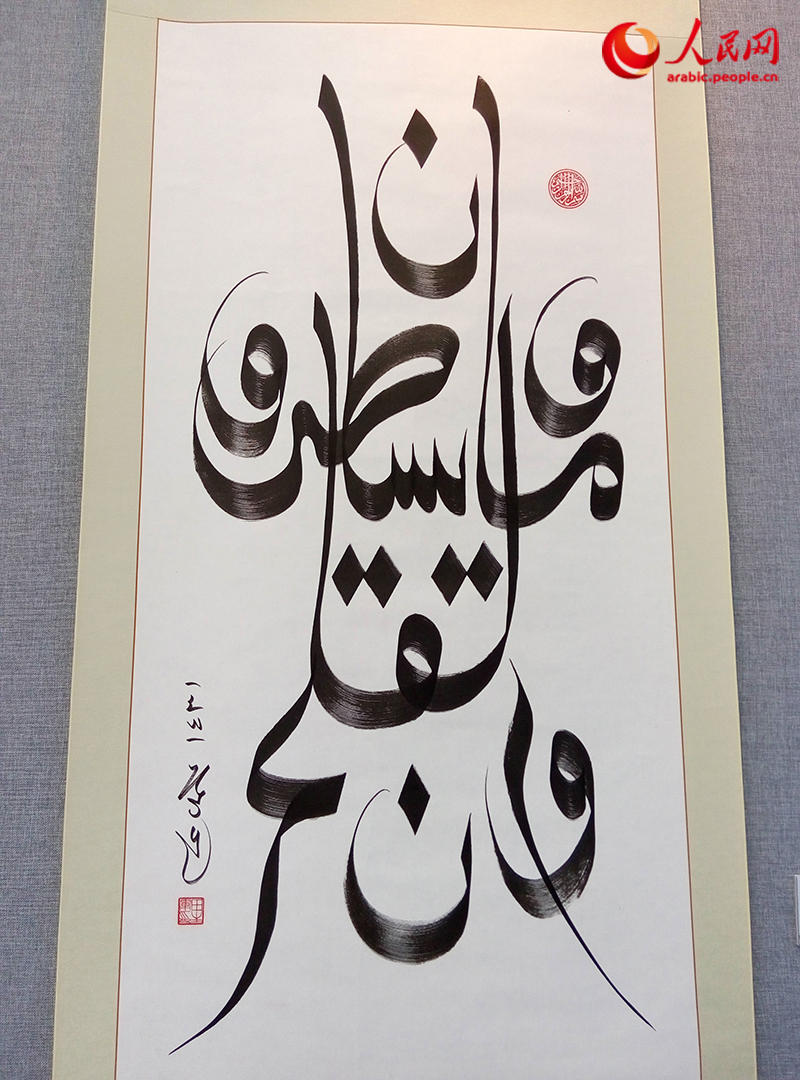 人民网
arabic.people.cn
ن والقلم وما يسطرون